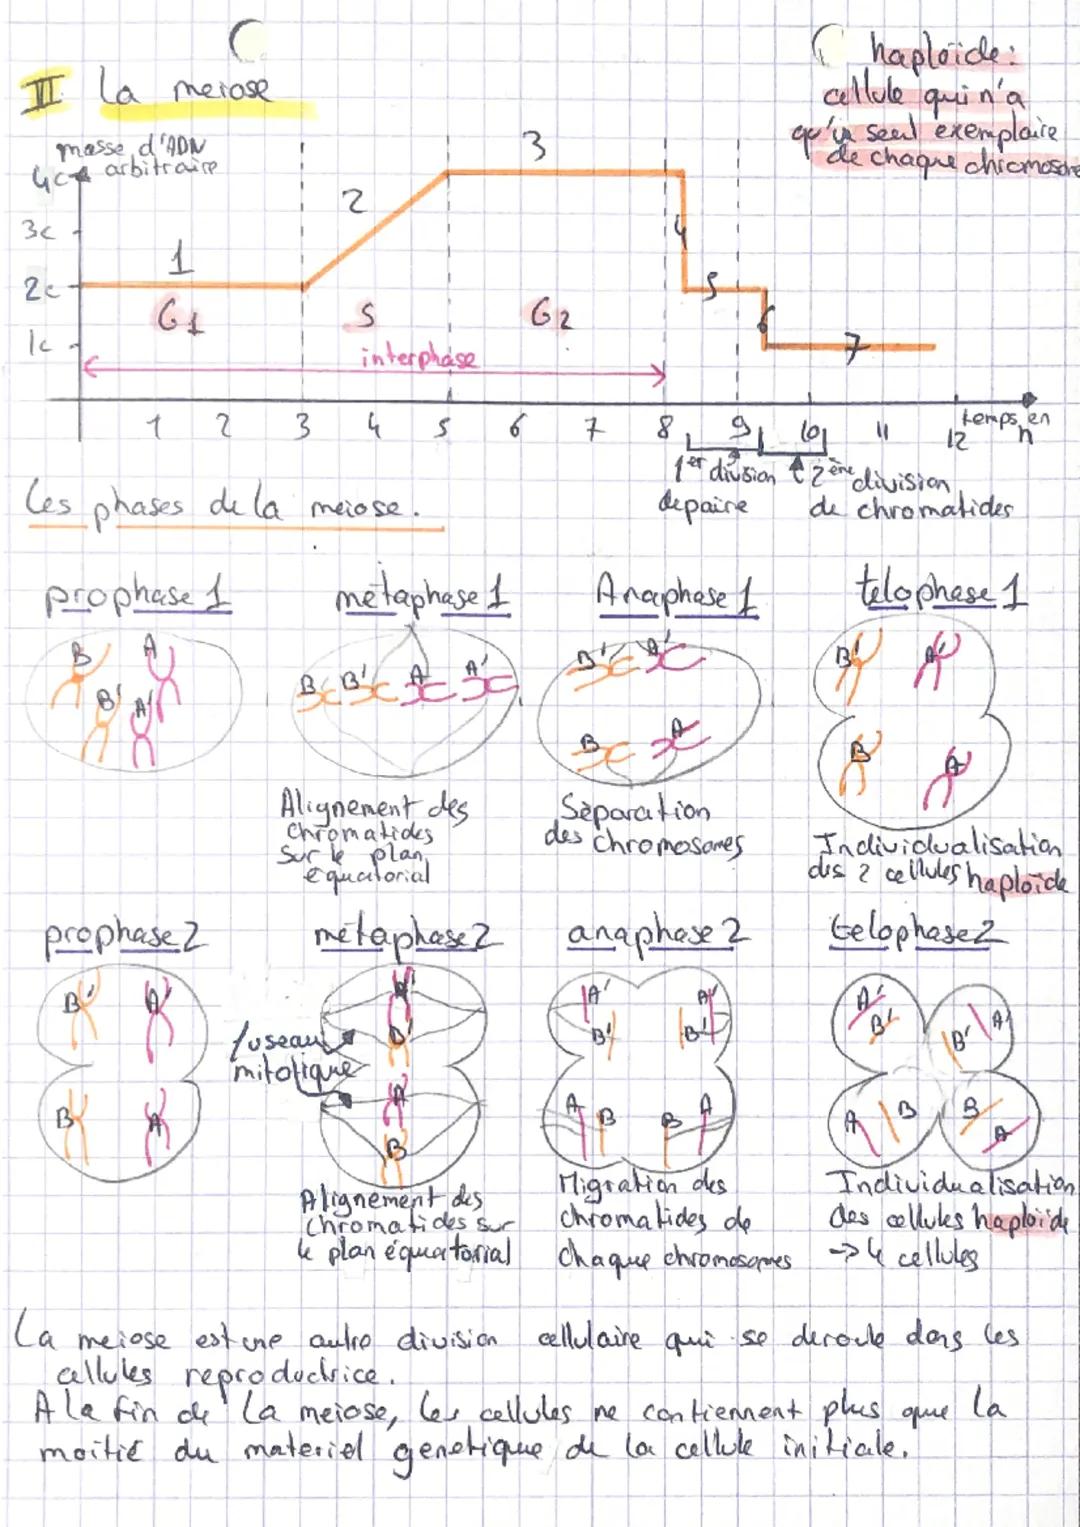 II La meiose
haploïde :
cellule qui n'a
qu'un seul exemplaire
de chaque chromosome
masse d'ADN
arbitraire
4c
3c
2c
1c
1
2
3
4
5
6
7
G1
S
G2
interphase
1 2 3 4 5 6 7 8 9 10 11 12
temps en
h
1er division
de paire
2ème division
de chromatides
Les phases de la meiose.
prophase 1
métaphase 1
Anaphase 1
telophase 1
B A
B' A'
B B' A A'
B' A'
B A
B' A'
B A
Alignement des
chromatides
sur le plan
équatorial
Séparation
des chromosomes
Individualisation
des 2 cellules haploïde
prophase 2
métaphase 2
anaphase 2
telophase 2
B' A'
B A
fuseau
mitotique
A'
B'
A
B
A' A'
B' B'
A B B A
A' B'
B' A'
A B
B A
Alignement des
chromatides sur
le plan équatorial
Migration des
chromatides de
chaque chromosomes
Individualisation
des cellules haploïde
-> 4 cellules
La meiose est une autre division cellulaire qui se deroule dans les
cellules reproductrice.
A la fin de la meiose, les cellules ne contiennent plus que la
moitié du materiel genetique de la cellule initiale.